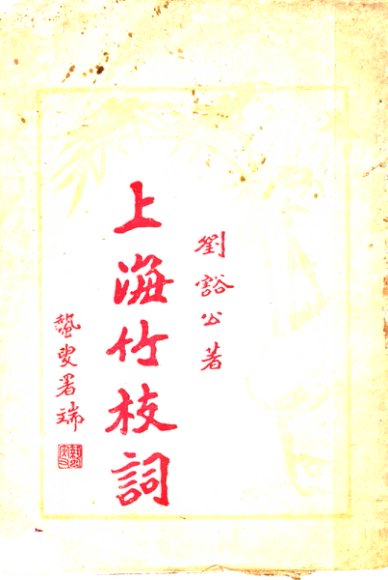 劉豁公著
上海竹枝詞
叟署端